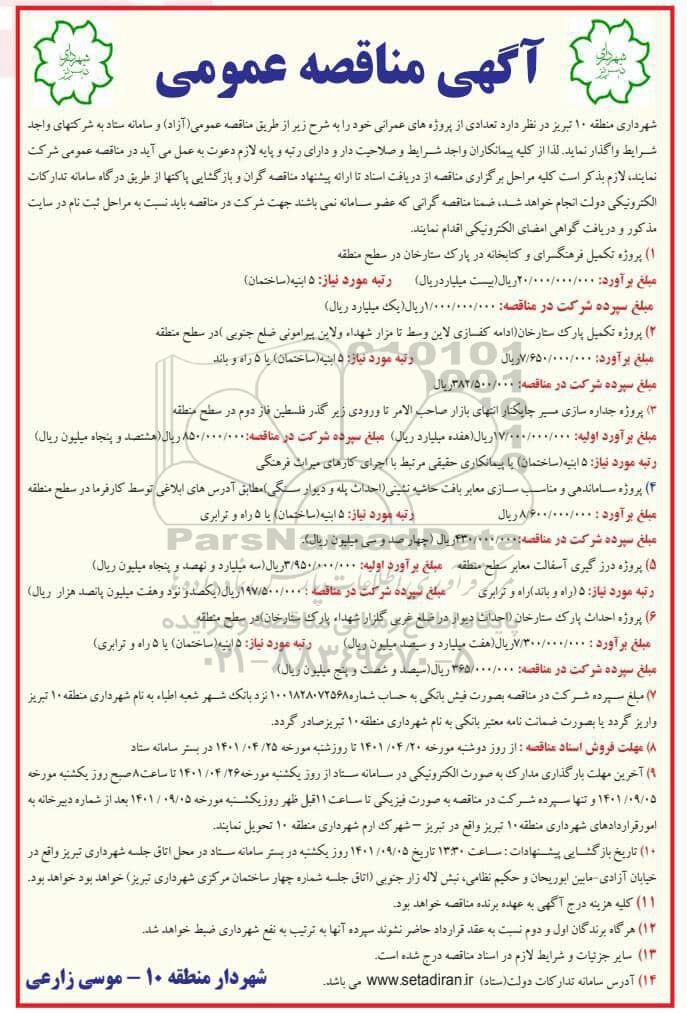 آگهی مناقصه عمومی
شهرداری تبریز
شهرداری تبریز
شهرداری منطقه ۱۰ تبریز در نظر دارد تعدادی از پروژه های عمرانی خود را به شرح زیر از طریق مناقصه عمومی(آزاد) و سامانه ستاد به شرکتهای واجد
شرایط واگذار نماید. لذا از کلیه پیمانکاران واجد شرایط و صلاحیت دار و دارای رتبه و پایه لازم دعوت به عمل می آید در مناقصه عمومی شرکت
نمایند، لازم بذکر است کلیه مراحل برگزاری مناقصه از دریافت اسناد تا ارائه پیشنهاد مناقصه گران و بازگشایی پاکتها از طریق درگاه سامانه تدارکات
الکترونیکی دولت انجام خواهد شد، ضمنا مناقصه گرانی که عضو سامانه نمی باشند جهت شرکت در مناقصه باید نسبت به مراحل ثبت نام در سایت
مذکور و دریافت گواهی امضای الکترونیکی اقدام نمایند.
۱) پروژه تکمیل فرهنگسرای و کتابخانه در پارک ستارخان در سطح منطقه
مبلغ برآورد: ۲۰/۰۰۰/۰۰۰/۰۰۰ریال(بیست میلیاردریال) رتبه مورد نیاز: ۵ ابنیه(ساختمان)
مبلغ سپرده شرکت در مناقصه: ۱/۰۰۰/۰۰۰/۰۰۰ریال(یک میلیارد ریال)
۲) پروژه تکمیل پارک ستارخان(ادامه کفسازی لاین وسط تا مزار شهداء ولاین پیرامونی ضلع جنوبی )در سطح منطقه
مبلغ برآورد: ۷/۶۵۰/۰۰۰/۰۰۰ریال رتبه مورد نیاز: ۵ ابنیه(ساختمان) یا ۵ راه و باند
مبلغ سپرده شرکت در مناقصه: ۳۸۲/۵۰۰/۰۰۰ریال
۳) پروژه جداره سازی مسیر چایکنار انتهای بازار صاحب الامر تا ورودی زیر گذر فلسطین فاز دوم در سطح منطقه
مبلغ برآورد اولیه: ۱۷/۰۰۰/۰۰۰/۰۰۰ریال(هفده میلیارد ریال) مبلغ سپرده شرکت در مناقصه:۸۵۰/۰۰۰/۰۰۰ ریال(هشتصد و پنجاه میلیون ریال)
رتبه مورد نیاز: ۵ ابنیه(ساختمان) یا پیمانکاری حقیقی مرتبط با اجرای کارهای میراث فرهنگی
۴) پروژه ساماندهی و مناسب سازی معابر بافت حاشیه نشینی(احداث پله و دیوار سنگی)مطابق آدرس های ابلاغی توسط کارفرما در سطح منطقه
مبلغ برآورد : ۸/۶۰۰/۰۰۰/۰۰۰ ریال رتبه مورد نیاز: ۵ ابنیه(ساختمان) یا ۵ راه و ترابری
مبلغ سپرده شرکت در مناقصه:۴۳۰/۰۰۰/۰۰۰ریال (چهار صد و سی میلیون ریال).
۵) پروژه درز گیری آسفالت معابر سطح منطقه مبلغ برآورد اولیه: ۳/۹۵۰/۰۰۰/۰۰۰ریال(سه میلیارد و نهصد و پنجاه میلیون ریال)
رتبه مورد نیاز: ۵ (راه و باند)راه و ترابری مبلغ سپرده شرکت در مناقصه : ۱۹۷/۵۰۰/۰۰۰ریال(یکصدو نود وهفت میلیون پانصد هزار ریال)
۶) پروژه احداث پارک ستارخان (احداث دیوار در ضلع غربی گلزار شهداء پارک ستارخان)در سطح منطقه
مبلغ برآورد : ۷/۳۰۰/۰۰۰/۰۰۰ریال(هفت میلیارد و سیصد میلیون ریال) رتبه مورد نیاز: ۵ ابنیه(ساختمان) یا ۵ راه و ترابری)
مبلغ سپرده شرکت در مناقصه: ۳۶۵/۰۰۰/۰۰۰ ریال(سیصد و شصت و پنج میلیون ریال)
۷) مبلغ سپرده شرکت در مناقصه بصورت فیش بانکی به حساب شماره۱۰۰۱۸۲۸۰۷۲۵۶۸ نزد بانک شهر شعبه اطباء به نام شهرداری منطقه۱۰ تبریز
واریز گردد یا بصورت ضمانت نامه معتبر بانکی به نام شهرداری منطقه ۱۰ تبریزصادر گردد.
۸) مهلت فروش اسناد مناقصه : از روز دوشنبه مورخه ۱۴۰۱/۰۴/۲۰ تا روزشنبه مورخه ۱۴۰۱/۰۴/۲۵ در بستر سامانه ستاد
۹) آخرین مهلت بارگذاری مدارک به صورت الکترونیکی در سامانه ستاد از روز یکشنبه مورخه۱۴۰۱/۰۴/۲۶ تا ساعت۸صبح روز یکشنبه مورخه
۱۴۰۱/۰۹/۰۵ و تنها سپرده شرکت در مناقصه به صورت فیزیکی تا ساعت ۱۱قبل ظهر روزیکشنبه مورخه ۱۴۰۱/۰۹/۰۵ بعد از شماره دبیرخانه به
امورقراردادهای شهرداری منطقه۱۰ تبریز واقع در تبریز – شهرک ارم شهرداری منطقه ۱۰ تحویل نمایند.
۱۰) تاریخ بازگشایی پیشنهادات : ساعت ۱۳:۳۰ تاریخ ۱۴۰۱/۰۹/۰۵ روز یکشنبه در بستر سامانه ستاد در محل اتاق جلسه شهرداری تبریز واقع در
خیابان آزادی-مابین ابوریحان و حکیم نظامی، نبش لاله زار جنوبی (اتاق جلسه شماره چهار ساختمان مرکزی شهرداری تبریز) خواهد بود خواهد بود.
۱۱) کلیه هزینه درج آگهی به عهده برنده مناقصه خواهد بود.
۱۲) هرگاه برندگان اول و دوم نسبت به عقد قرارداد حاضر نشوند سپرده آنها به ترتیب به نفع شهرداری ضبط خواهد شد.
۱۳) سایر جزئیات و شرایط لازم در اسناد مناقصه درج شده است.
۱۴) آدرس سامانه تدارکات دولت(ستاد) www.setadiran.ir می باشد.
شهردار منطقه ۱۰ – موسی زارعی
ParsNamadData
پایگاه اطلاع رسانی مناقصه و مزایده
۰۲۱-۸۸۳۴۹۶۷۰-۵